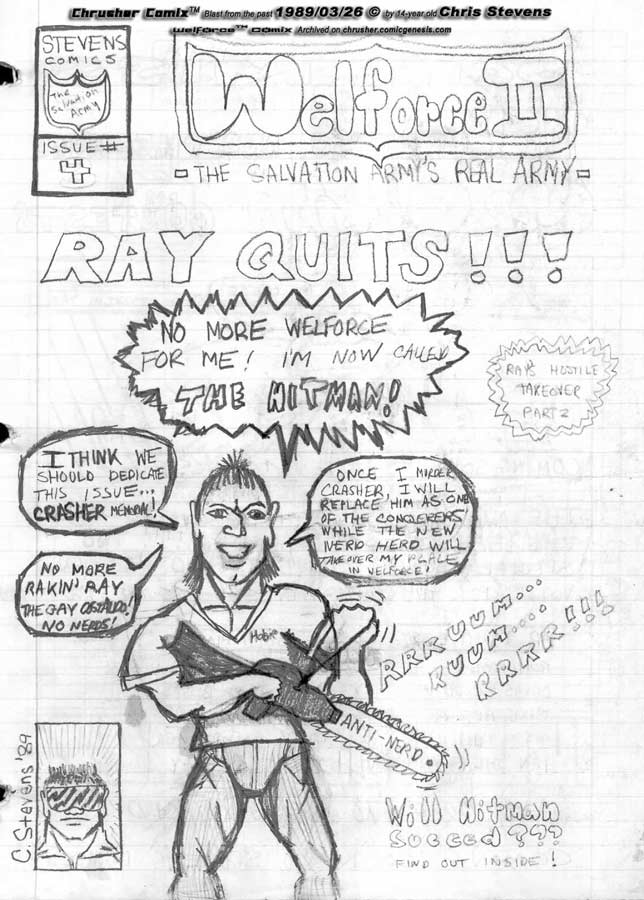 Chrusher Comix™ Blast from the past 1989/03/26 © by 14-year old Chris Stevens
Welforce™ Comix Archived on chrusher.comicgenesis.com
STEVENS
COMICS
The
Salvation
Army
ISSUE#
4
Welforce II
THE SALVATION ARMY'S REAL ARMY
RAY QUITS!!!
NO MORE WELFORCE
FOR ME! I'M NOW CALLED
THE HITMAN!
RAY'S HOSTILE
TAKEOVER
PART 2
I THINK WE
SHOULD DEDICATE
THIS ISSUE...
CRASHER MEMORIAL!
ONCE I MURDER
CRASHER, I WILL
REPLACE HIM AS ONE
OF THE CONQUERERS
WHILE THE NEW
NERD HERD WILL
TAKEOVER MY PLACE
IN WELFORCE!
NO MORE
RAKIN' RAY
THE GAY
NO NERDS!
RRRUUM...
RUUM....
RRRR!!!
ANTI-NERD
C. Stevens '89
Will Hitman
Succed???
FIND OUT INSIDE!